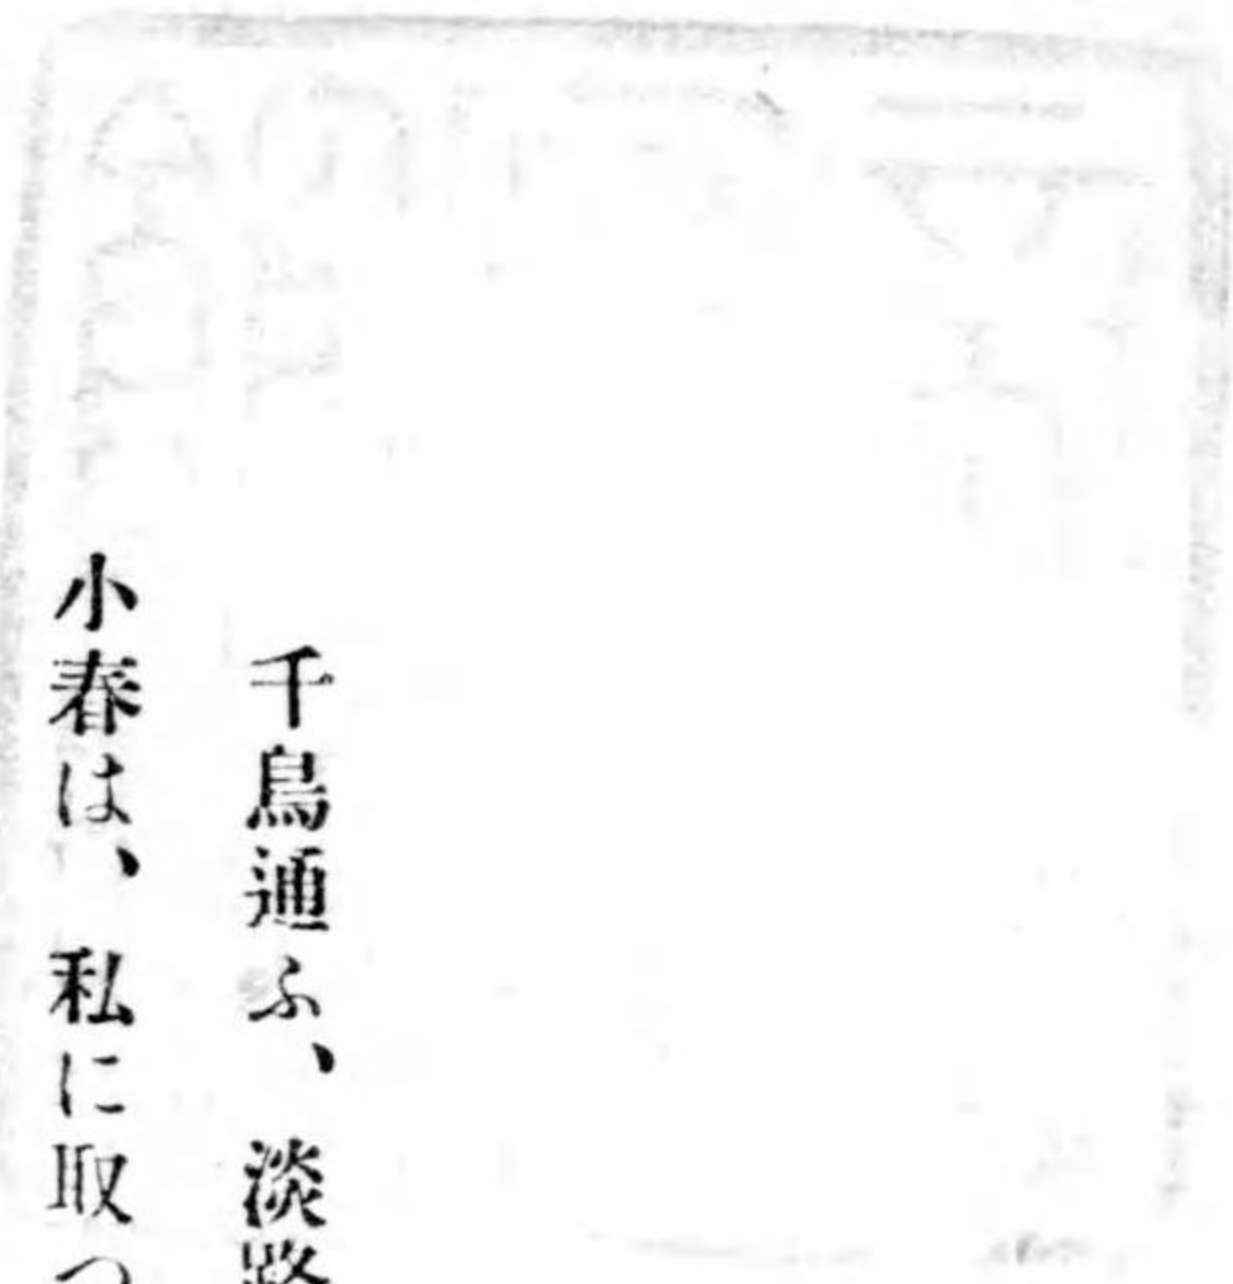 千鳥通ふ、淡路
小春は、私に取つ